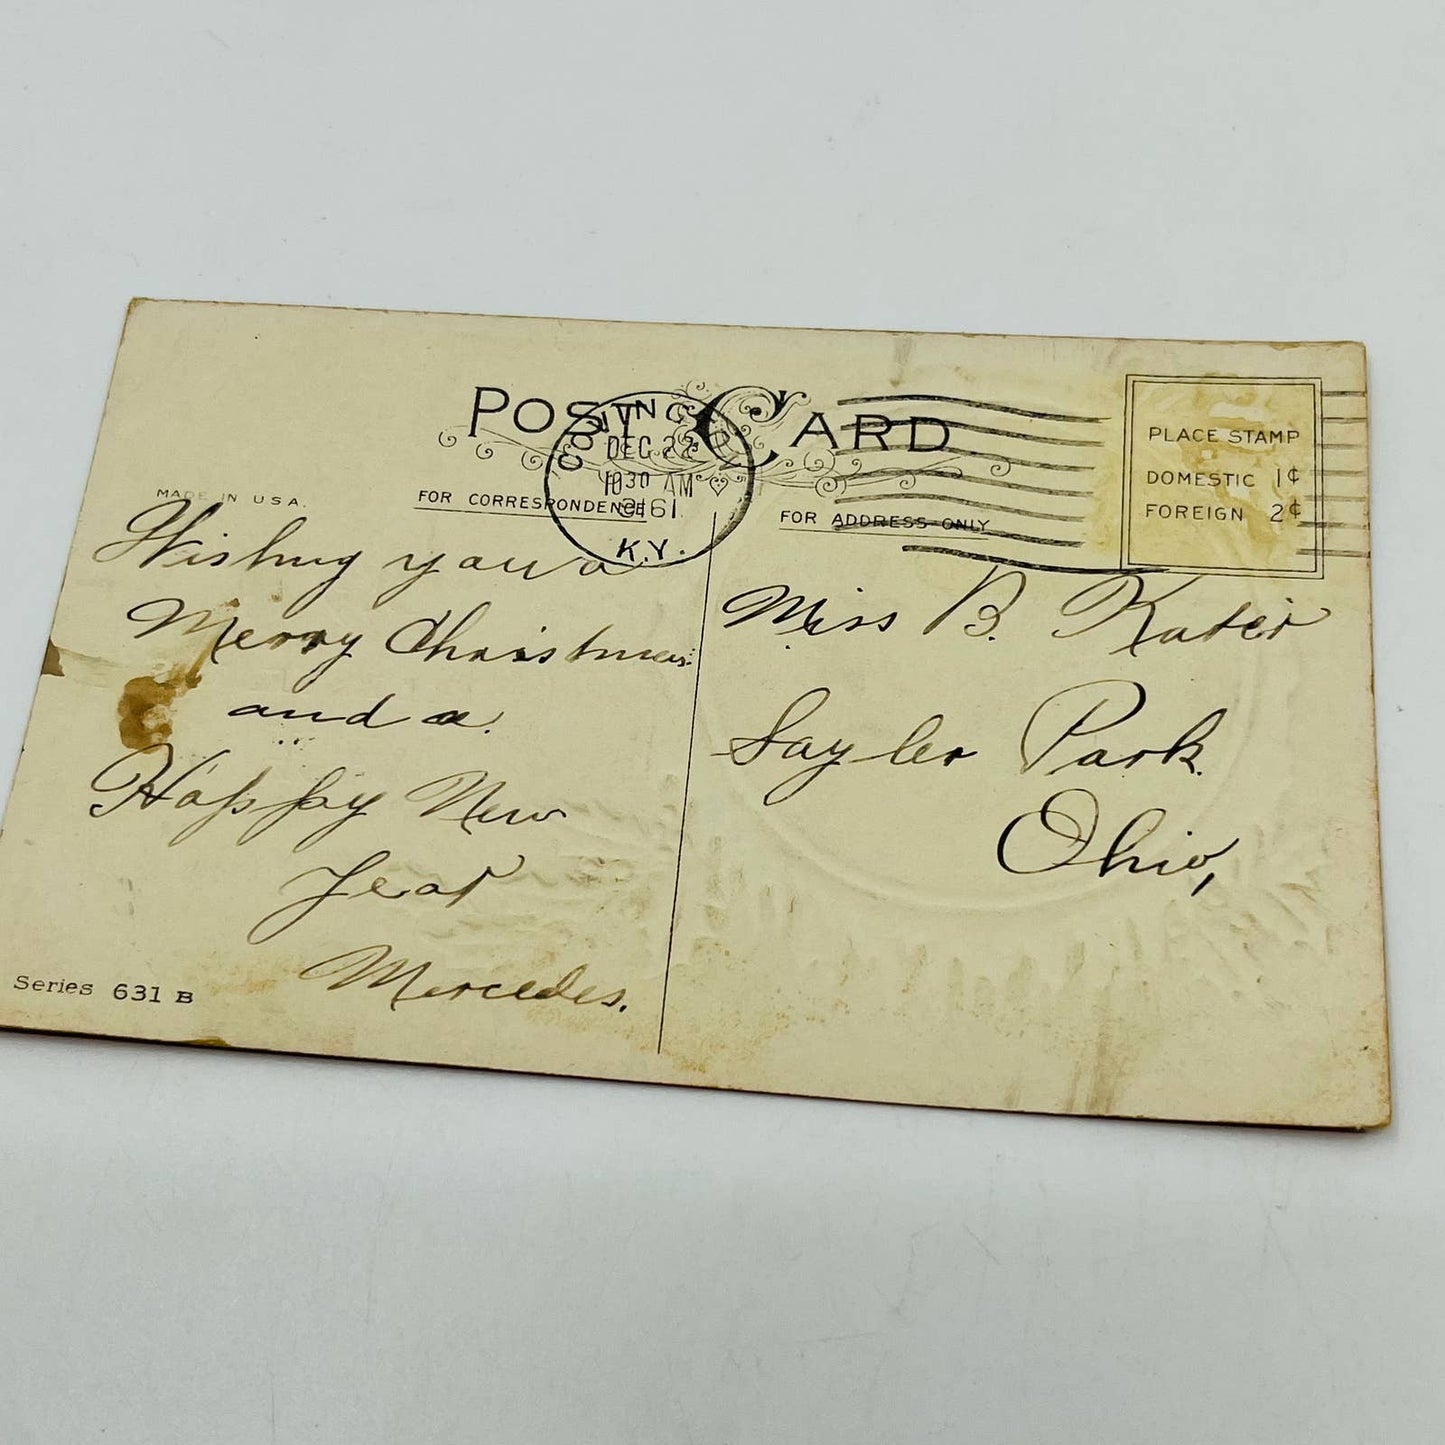 POST CARD
COVINGTON
DEC 22
10 30 AM
1916
K.Y.
PLACE STAMP
DOMESTIC 1¢
FOREIGN 2¢
MADE IN U.S.A.
FOR CORRESPONDENCE
FOR ADDRESS ONLY
Wishing you a
Merry Christmas
and a
Happy New
Year
Mercedes.
Series 631 B
Miss B.
Sayler Park
Ohio,